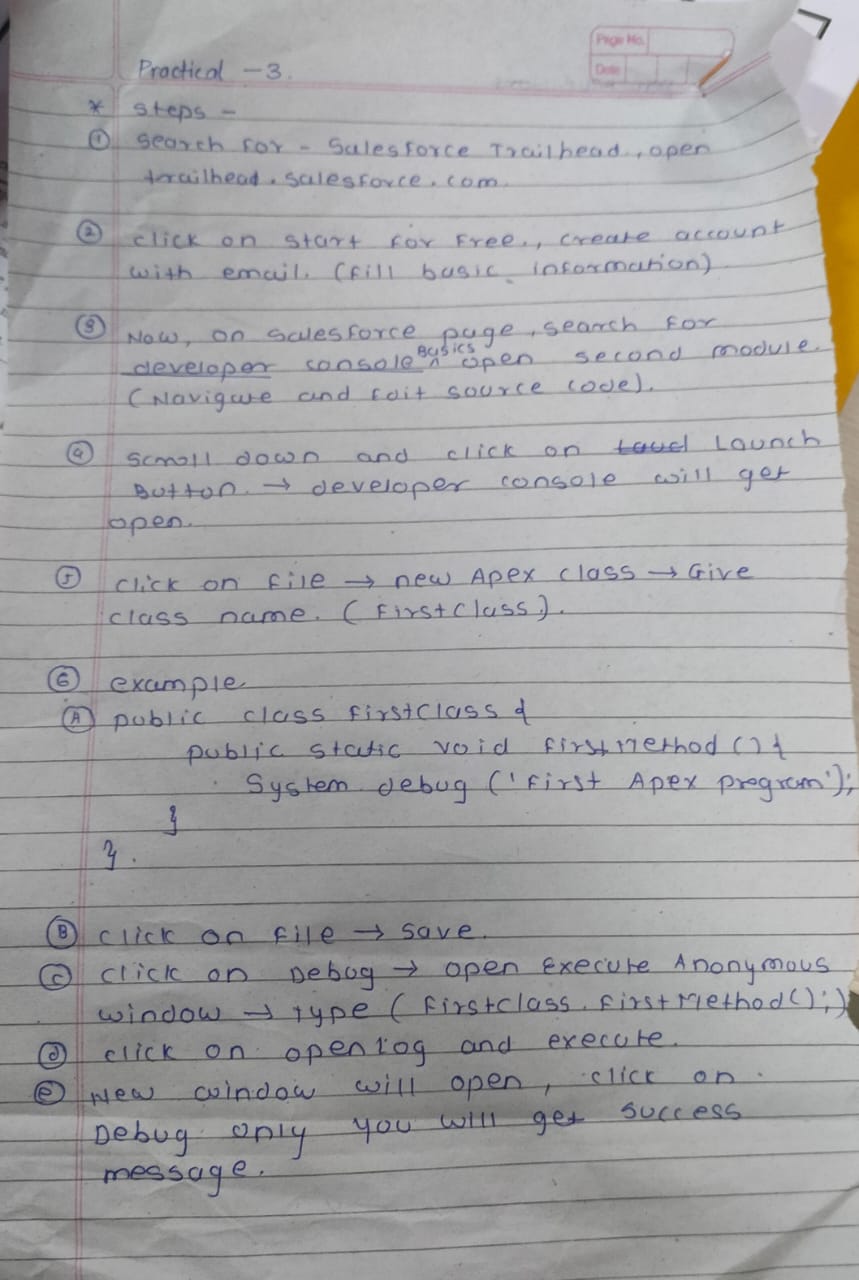 Page No.
Date
Practical - 3.
* Steps -
① Search for - Salesforce Trailhead., open
trailhead.salesforce.com.
② click on start for free., create account
with email. (fill basic information)
③ Now, on salesforce page, search for
developer console Basics open second module.
(Navigate and Edit source code).
④ Scroll down and click on Launch
Button. → developer console will get
open.
⑤ click on file → new Apex class → Give
class name. (FirstClass).
⑥ example
Ⓐ public class firstClass {
public static void firstMethod () {
System.debug ('First Apex program');
}
}.
Ⓑ click on file → save.
Ⓒ click on Debug → open Execute Anonymous
window → type (Firstclass.firstMethod();)
ⓓ click on open log and execute.
ⓔ New window will open, click on
Debug only you will get success
message.